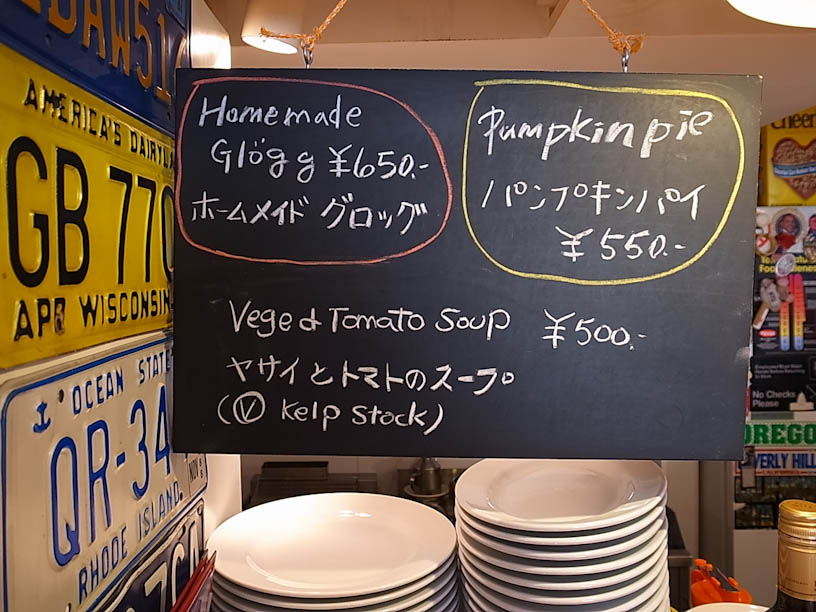 DAW51
AMERICA'S DAIRYLA
GB 770
APR WISCONSIN
OCEAN STAT
QR-34
NOV
RHODE ISLAND
Homemade
Glögg ¥650.-
ホームメイド グロッグ
Pumpkin pie
パンプキンパイ
¥550.-
Vege & Tomato Soup ¥500.-
ヤサイとトマトのスープ
(Ⓥ Kelp Stock)
Cheer
No Checks
Please
OREGO
VERLY HILL